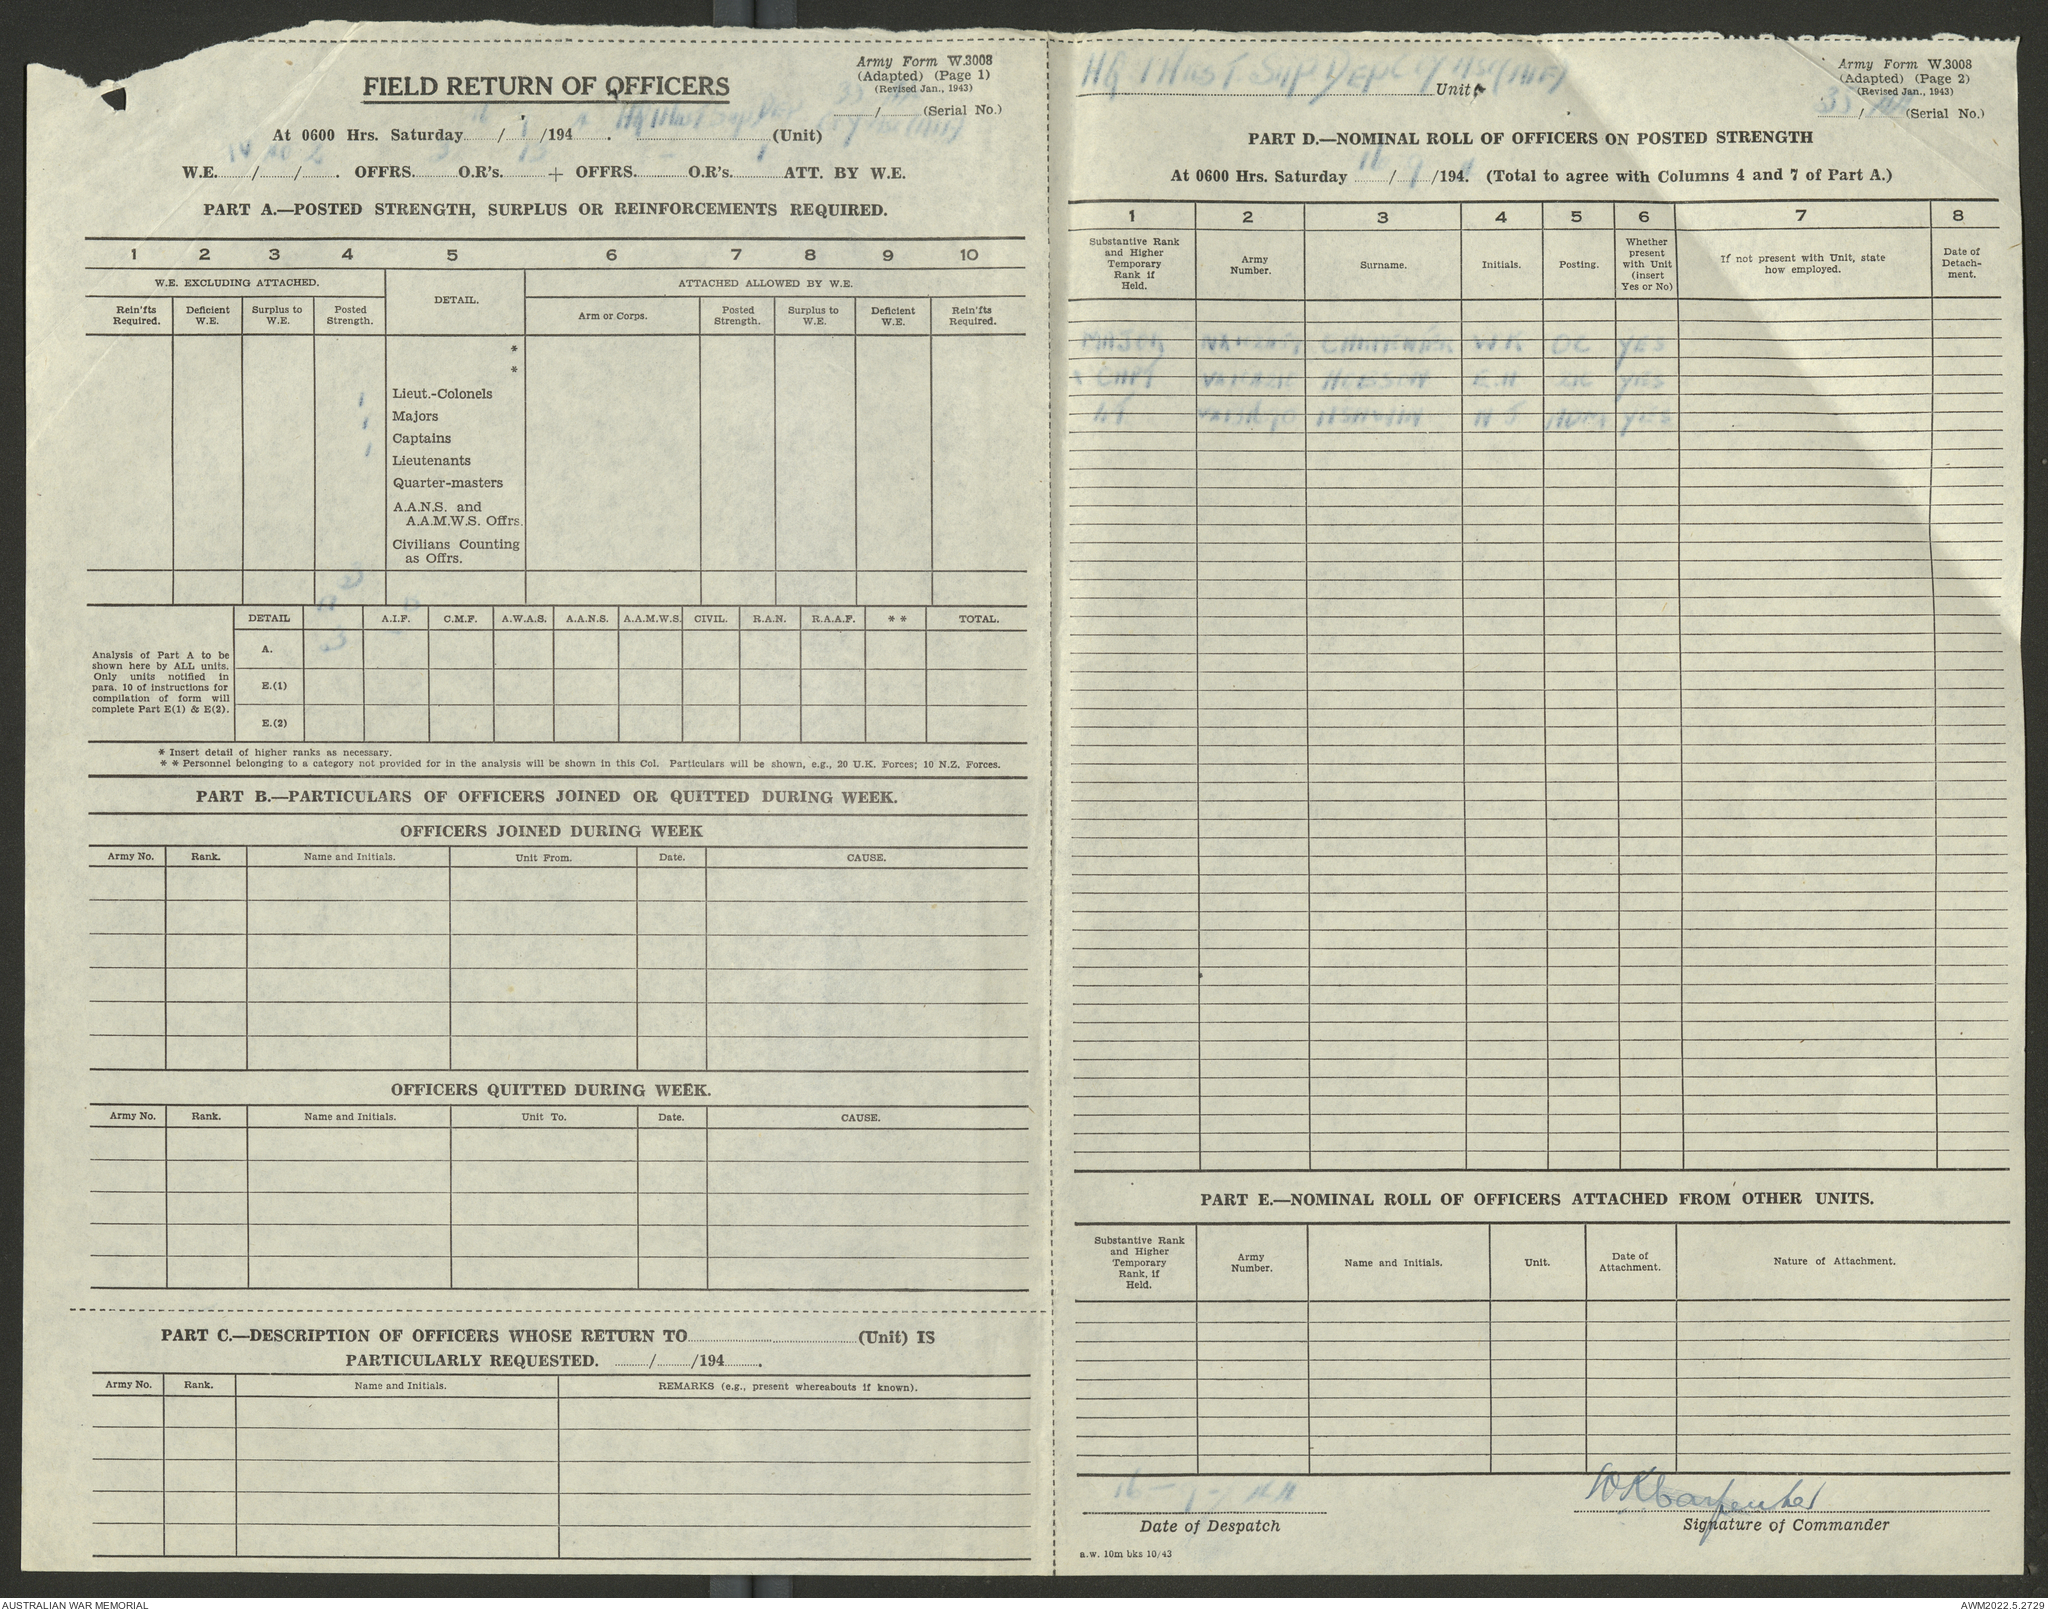 FIELD RETURN OF OFFICERS
Army Form W.3008
(Adapted) (Page 1)
(Revised Jan., 1943)
/ (Serial No.)
At 0600 Hrs. Saturday / /194 . (Unit)
W.E. / / . OFFRS. O.R's. + OFFRS. O.R's. ATT. BY W.E.
PART A.—POSTED STRENGTH, SURPLUS OR REINFORCEMENTS REQUIRED.
1 2 3 4 5 6 7 8 9 10
W.E. EXCLUDING ATTACHED. DETAIL. ATTACHED ALLOWED BY W.E.
Rein'fts Required. Deficient W.E. Surplus to W.E. Posted Strength. Arm or Corps. Posted Strength. Surplus to W.E. Deficient W.E. Rein'fts Required.
*
*
Lieut.-Colonels
1 Majors
1 Captains
1 Lieutenants
Quarter-masters
A.A.N.S. and
A.A.M.W.S. Offrs.
Civilians Counting
as Offrs.
3
DETAIL A.I.F. C.M.F. A.W.A.S. A.A.N.S. A.A.M.W.S. CIVIL. R.A.N. R.A.A.F. * * TOTAL.
Analysis of Part A to be
shown here by ALL units.
Only units notified in
para. 10 of instructions for
compilation of form will
complete Part E(1) & E(2).
A. 3
E.(1)
E.(2)
* Insert detail of higher ranks as necessary.
* * Personnel belonging to a category not provided for in the analysis will be shown in this Col. Particulars will be shown, e.g., 20 U.K. Forces; 10 N.Z. Forces.
PART B.—PARTICULARS OF OFFICERS JOINED OR QUITTED DURING WEEK.
OFFICERS JOINED DURING WEEK
Army No. Rank. Name and Initials. Unit From. Date. CAUSE.
OFFICERS QUITTED DURING WEEK.
Army No. Rank. Name and Initials. Unit To. Date. CAUSE.
PART C.—DESCRIPTION OF OFFICERS WHOSE RETURN TO (Unit) IS
PARTICULARLY REQUESTED. / /194 .
Army No. Rank. Name and Initials. REMARKS (e.g., present whereabouts if known).
HQ 1 Aust Sup Dep (AIF) Unit
Army Form W.3008
(Adapted) (Page 2)
(Revised Jan., 1943)
35/44 (Serial No.)
PART D.—NOMINAL ROLL OF OFFICERS ON POSTED STRENGTH
At 0600 Hrs. Saturday 16/9/1944 (Total to agree with Columns 4 and 7 of Part A.)
1 2 3 4 5 6 7 8
Substantive Rank and Higher Temporary Rank if Held. Army Number. Surname. Initials. Posting. Whether present with Unit (insert Yes or No) If not present with Unit, state how employed. Date of Detach-ment.
MAJOR CARPENTER W K OC YES
CAPT E.H YES
LT YES
PART E.—NOMINAL ROLL OF OFFICERS ATTACHED FROM OTHER UNITS.
Substantive Rank and Higher Temporary Rank, if Held. Army Number. Name and Initials. Unit. Date of Attachment. Nature of Attachment.
16-9-44
Date of Despatch
WKCarpenter
Signature of Commander
a.w. 10m bks 10/43
AUSTRALIAN WAR MEMORIAL
AWM2022.5.2729